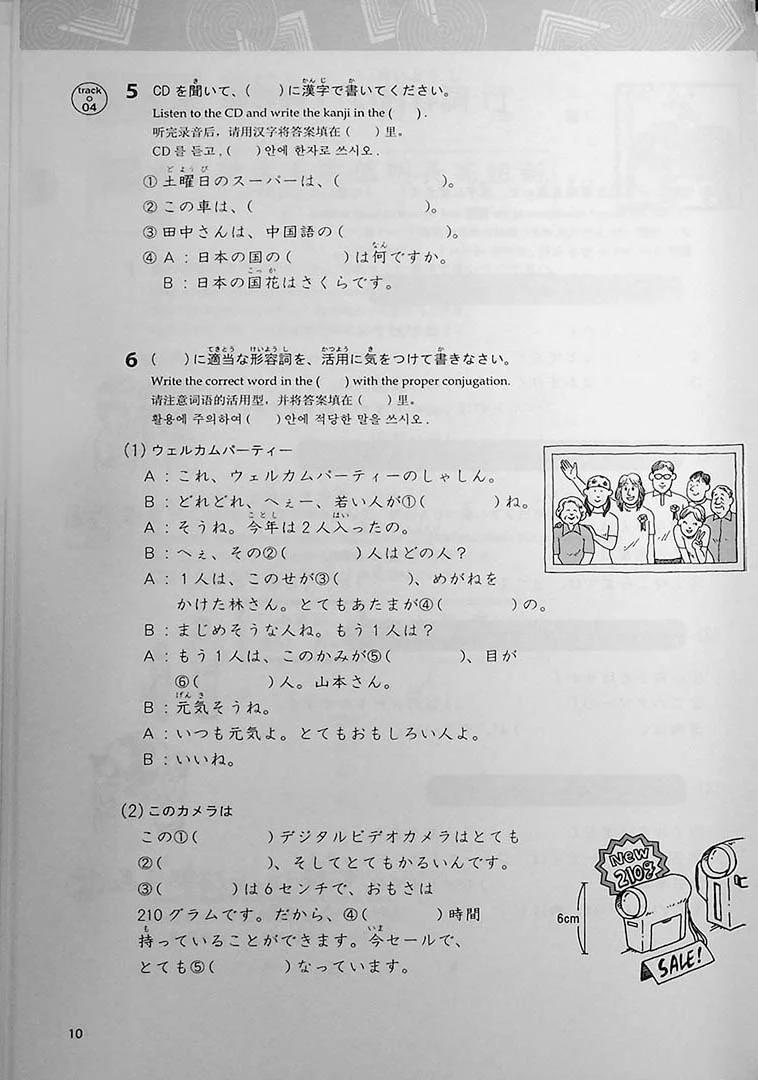 track 04
5 CDを聞いて、(　　)に漢字で書いてください。
Listen to the CD and write the kanji in the (　　).
听完录音后，请用汉字将答案填在（　　）里。
CD를 듣고, (　　)안에 한자로 쓰시오.
①土曜日のスーパーは、(　　　　　　)。
②この車は、(　　　　　　　　　　)。
③田中さんは、中国語の(　　　　　　)。
④A：日本の国の(　　　　)は何ですか。
B：日本の国花はさくらです。
6 (　　)に適当な形容詞を、活用に気をつけて書きなさい。
Write the correct word in the (　　) with the proper conjugation.
请注意词语的活用型，并将答案填在（　　）里。
활용에 주의하여 (　　)안에 적당한 말을 쓰시오.
(1) ウェルカムパーティー
A：これ、ウェルカムパーティーのしゃしん。
B：どれどれ、へぇー、若い人が①(　　　　)ね。
A：そうね。今年は2人入ったの。
B：へぇ、その②(　　　　)人はどの人？
A：1人は、このせが③(　　　　)、めがねを
かけた林さん。とてもあたまが④(　　　　)の。
B：まじめそうな人ね。もう1人は？
A：もう1人は、このかみが⑤(　　　　)、目が
⑥(　　　　)人。山本さん。
B：元気そうね。
A：いつも元気よ。とてもおもしろい人よ。
B：いいね。
(2) このカメラは
この①(　　　　)デジタルビデオカメラはとても
②(　　　　　　)、そしてとてもかるいんです。
③(　　　　)は6センチで、おもさは
210グラムです。だから、④(　　　　)時間
持っていることができます。今セールで、
とても⑤(　　　　)なっています。
New
210g
6cm
SALE!
10